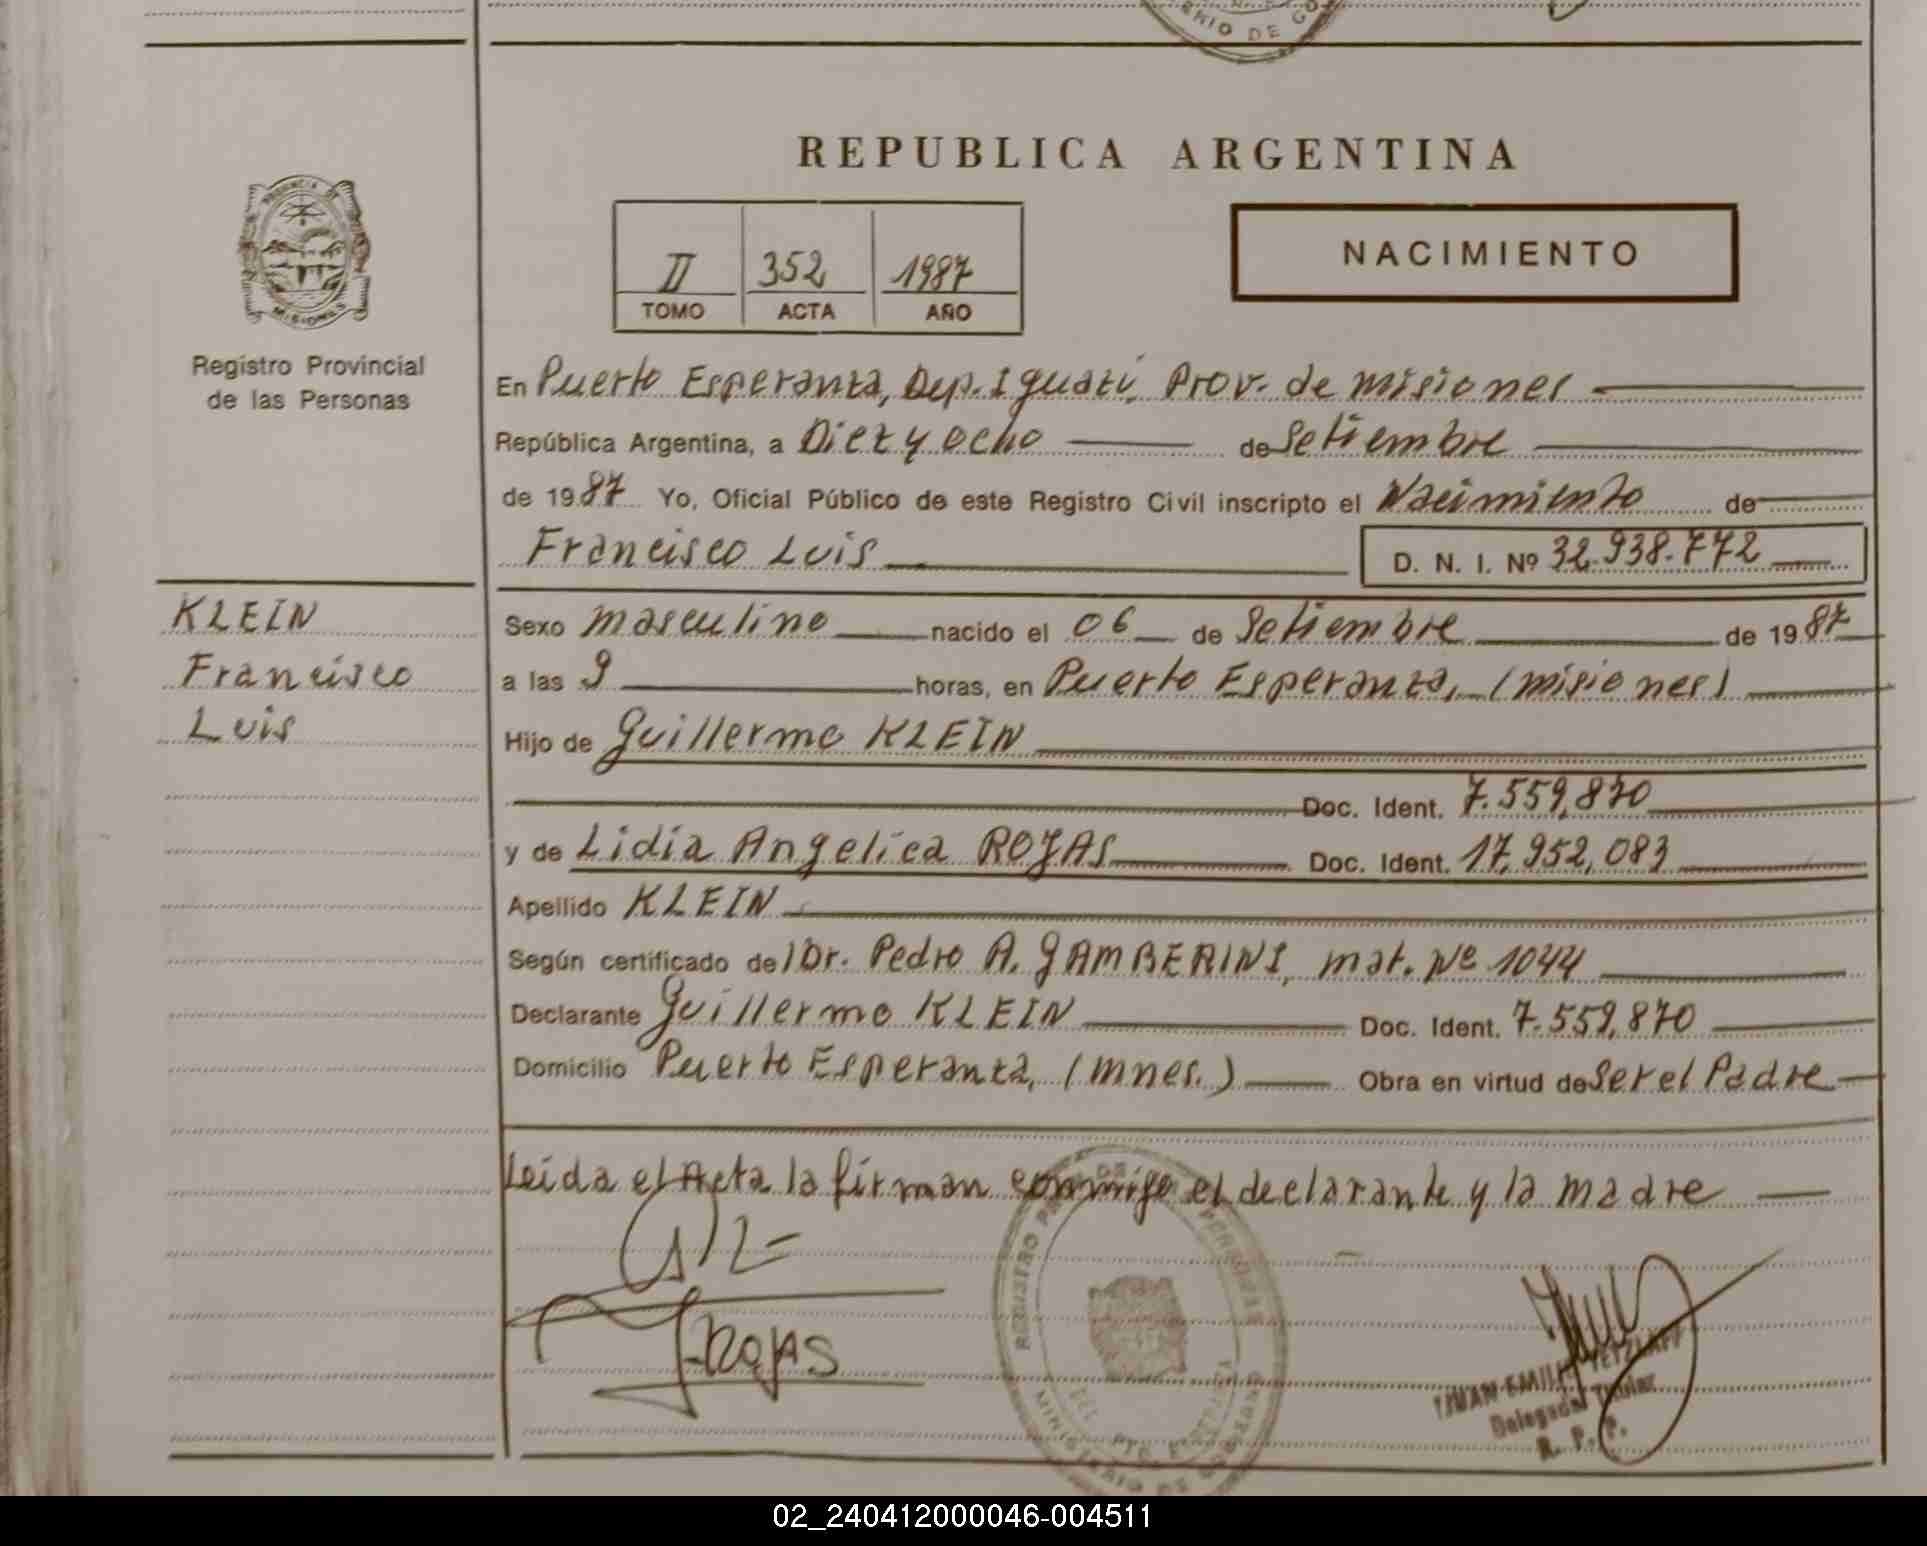 NIO DE GO
REPUBLICA ARGENTINA
PROVINCIA DE
MISIONES
II 352 1987
TOMO ACTA AÑO
NACIMIENTO
Registro Provincial
de las Personas
En Puerto Esperanza, Dep. Iguazú, Prov. de Misiones
República Argentina, a Diez y ocho de Setiembre
de 1987 Yo, Oficial Público de este Registro Civil inscripto el Nacimiento de
Francisco Luis D. N. I. Nº 32.938.772
KLEIN
Francisco
Luis
Sexo masculino nacido el 06 de Setiembre de 1987
a las 9 horas, en Puerto Esperanza, (misiones)
Hijo de Guillermo KLEIN
Doc. Ident. 7.559,870
y de Lidia Angelica ROJAS Doc. Ident. 17,952,083
Apellido KLEIN
Según certificado del Dr. Pedro A. GAMBERINI, mat. Nº 1044
Declarante Guillermo KLEIN Doc. Ident. 7.559,870
Domicilio Puerto Esperanza, (mnes.) Obra en virtud de Ser el Padre
Leida el Acta la firman conmigo el declarante y la madre
ROJAS
MINISTERIO DE GOBIERNO
Delegado Titular
R. P. P.
02_240412000046-004511